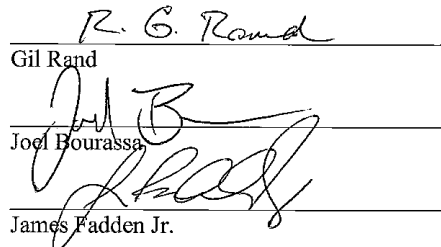 R. G. Rand
Gil Rand
Joel B
Joel Bourassa
James Fadden Jr.